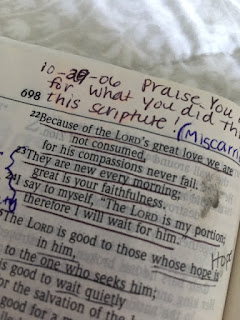 10-29-06 Praise You
for what You did th
this scripture! (Miscarr
698 22Because of the LORD's great love we are
not consumed,
for his compassions never fail.
23They are new every morning;
great is your faithfulness.
24I say to myself, "The LORD is my portion;
therefore I will wait for him.
The LORD is good to those whose hope is
in him, Hope
to the one who seeks him;
is good to wait quietly
for the salvation of the
good for a m